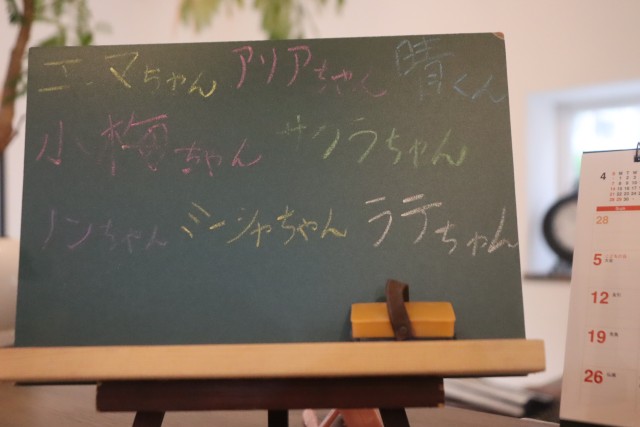 エマちゃん アリアちゃん 晴くん
小梅ちゃん サクラちゃん
ノンちゃん ミーシャちゃん ラテちゃん
4
28
5
12
19
26